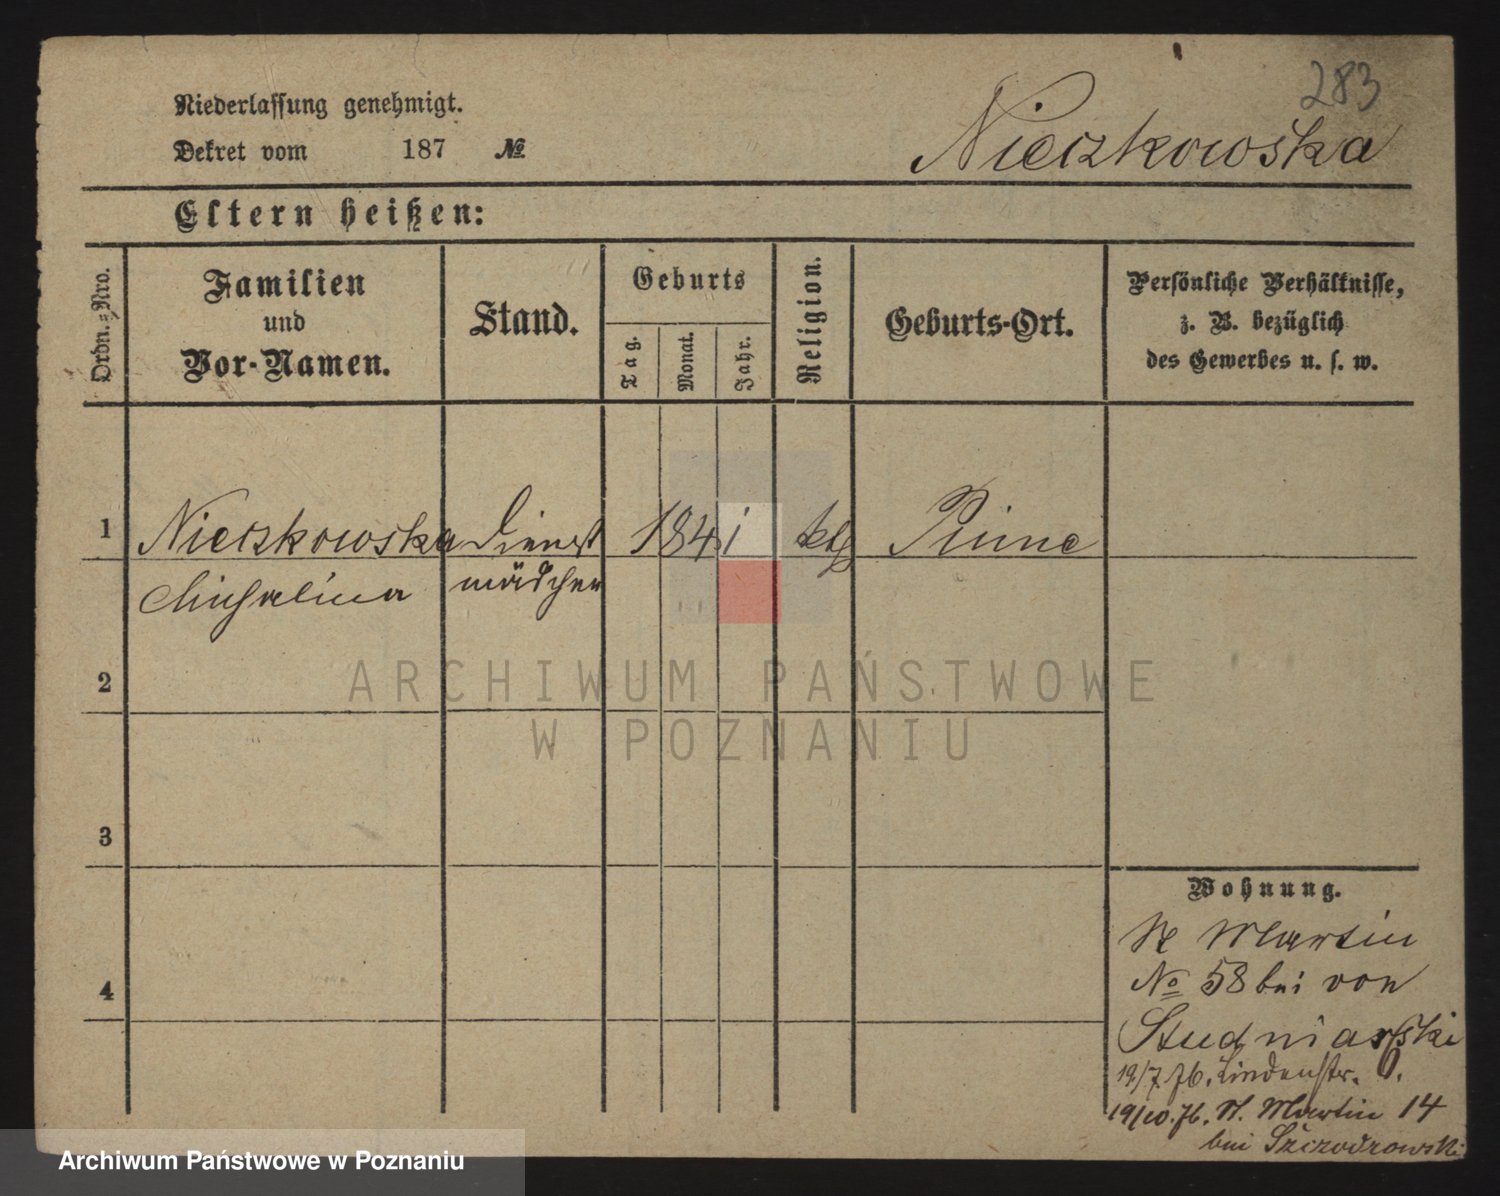 283
Niederlassung genehmigt.
Dekret vom 187 №
Nieczkowska
Eltern heißen:
Ordn.-Nro.
Familien
und
Vor-Namen.
Stand.
Geburts
Tag.
Monat.
Jahr.
Religion.
Geburts-Ort.
Persönliche Verhältnisse,
z. B. bezüglich
des Gewerbes u. s. w.
1 Nieczkowska Dienst 1841 kth Pinne
Michalina mädchen
2
3
4
Wohnung.
St Martin
No 58 bei von
Studniarski
19/7. 76. Lindenstr. 6.
19/10. 76. St. Martin 14
bei Szczodrowski
ARCHIWUM PAŃSTWOWE
W POZNANIU
Archiwum Państwowe w Poznaniu